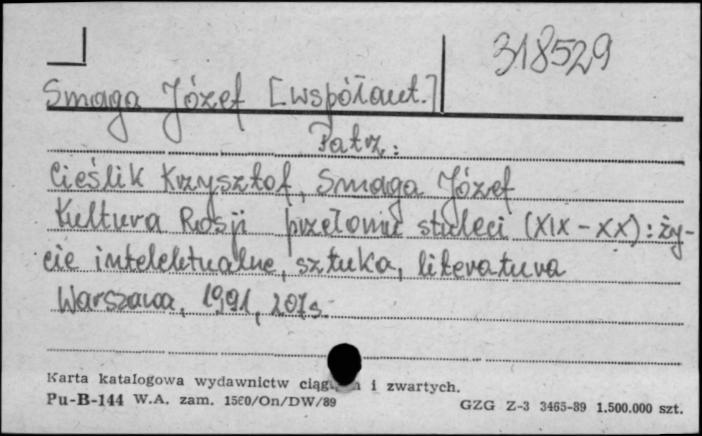 318529
Smaga Józef [współaut.]
Patrz:
Cieślik Krzysztof, Smaga Józef
Kultura Rosji przełomu stuleci (XIX-XX): ży-
cie intelektualne, sztuka, literatura
Warszawa, 1991, 207 s.
Karta katalogowa wydawnictw i zwartych.
Pu-B-144 W.A. zam. 1560/On/DW/89
GZG Z-3 3465-89 1.500.000 szt.